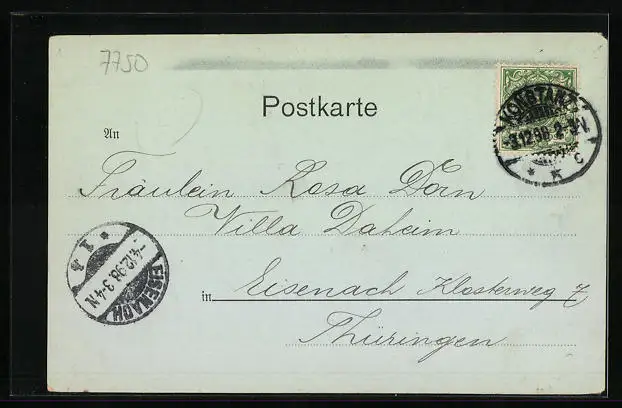 7750
Postkarte
KONSTANZ
-3.12.98. 2-3N.
* K c
An
Fräulein Rosa Dorn
Villa Daheim
in Eisenach Klosterweg 7
Thüringen
EISENACH
-4.12.98. 3-4N.
* 1 *